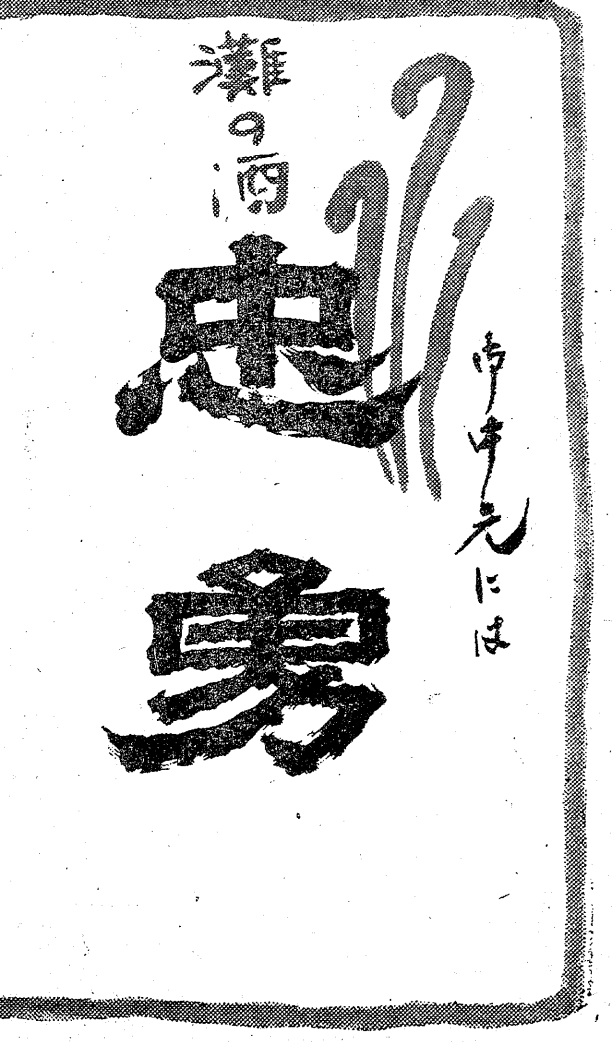 御中元には
灘の酒
忠勇